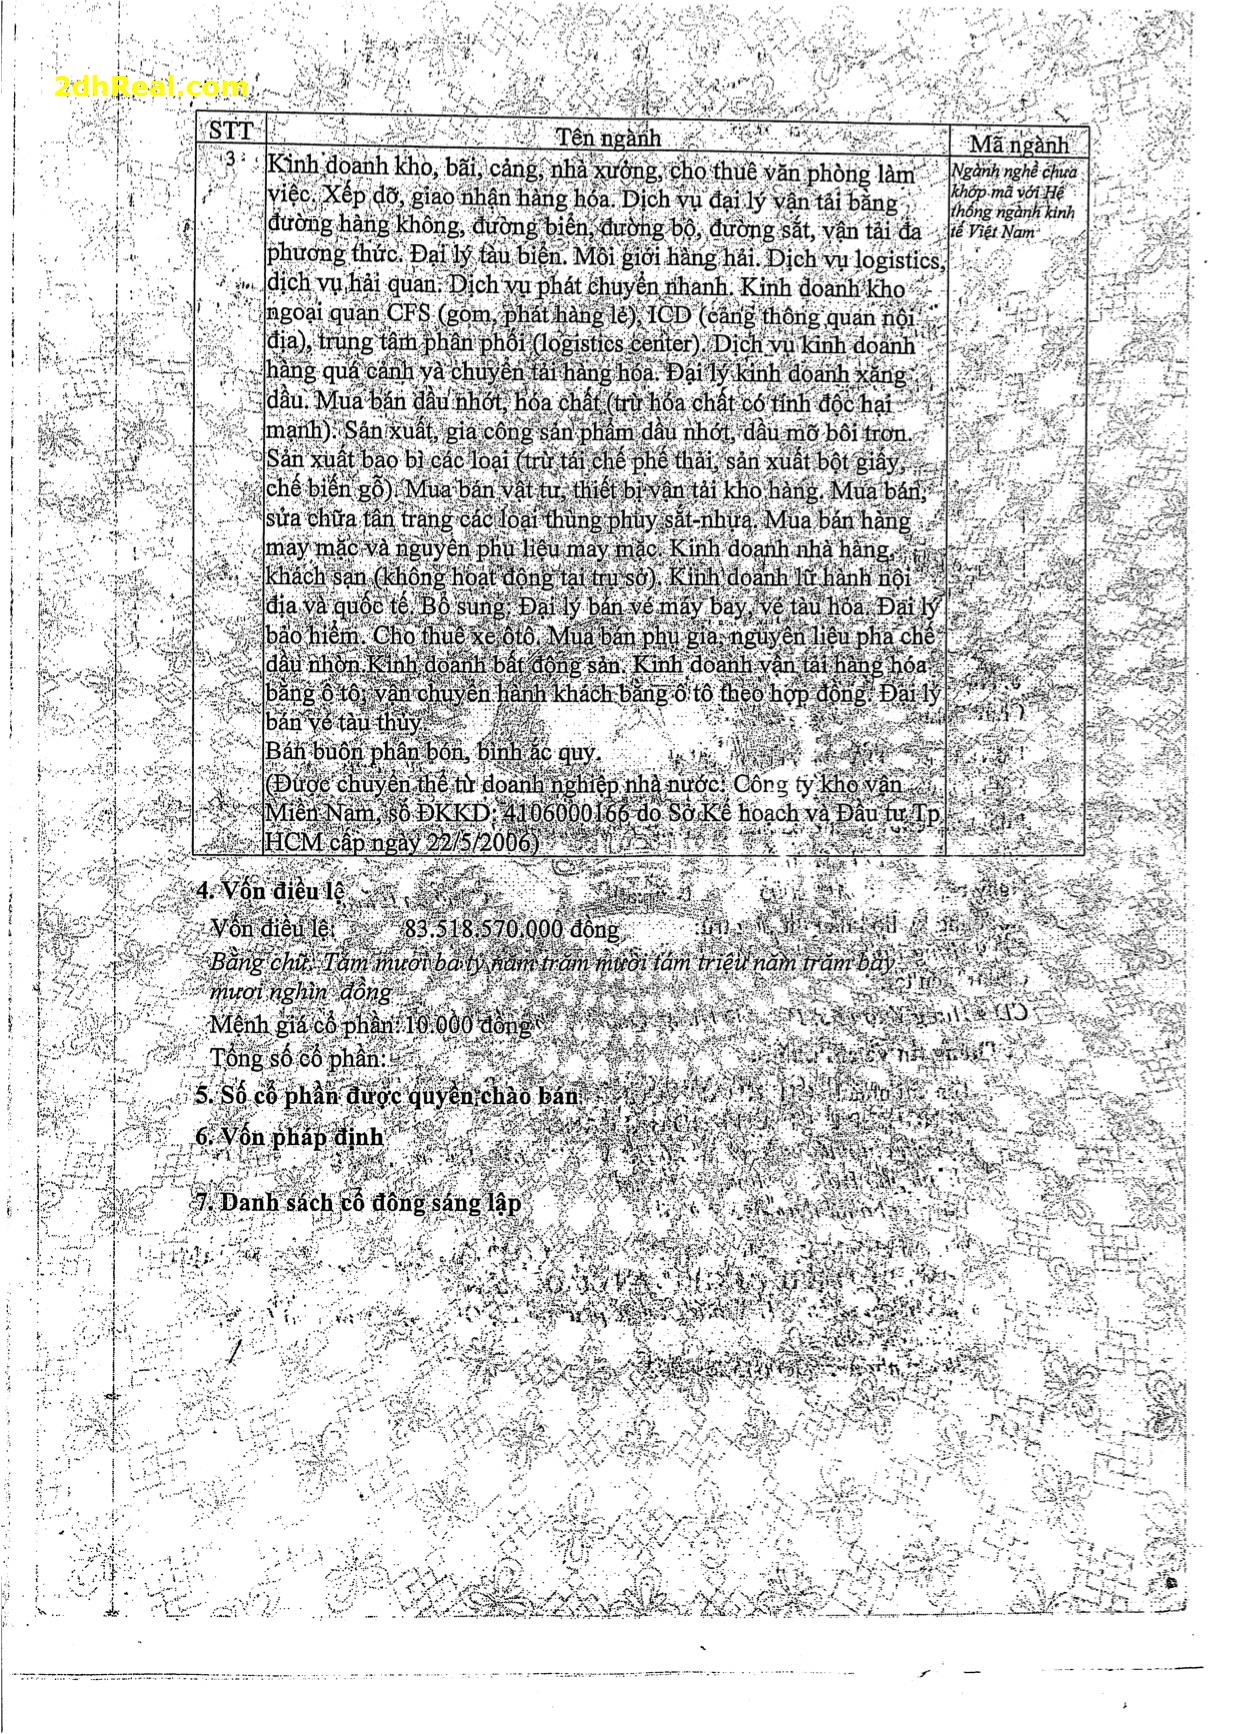 2dhReal.com
STT Tên ngành Mã ngành
3 Kinh doanh kho, bãi, cảng, nhà xưởng, cho thuê văn phòng làm
việc. Xếp dỡ, giao nhận hàng hóa. Dịch vụ đại lý vận tải bằng
đường hàng không, đường biển, đường bộ, đường sắt, vận tải đa
phương thức. Đại lý tàu biển. Môi giới hàng hải. Dịch vụ logistics,
dịch vụ hải quan. Dịch vụ phát chuyển nhanh. Kinh doanh kho
ngoại quan CFS (gom, phát hàng lẻ), ICD (cảng thông quan nội
địa), trung tâm phân phối (logistics center). Dịch vụ kinh doanh
hàng quá cảnh và chuyển tải hàng hóa. Đại lý kinh doanh xăng
dầu. Mua bán dầu nhớt, hóa chất (trừ hóa chất có tính độc hại
mạnh). Sản xuất, gia công sản phẩm dầu nhớt, dầu mỡ bôi trơn.
Sản xuất bao bì các loại (trừ tái chế phế thải, sản xuất bột giấy,
chế biến gỗ). Mua bán vật tư, thiết bị vận tải kho hàng. Mua bán,
sửa chữa tân trang các loại thùng phuy sắt-nhựa. Mua bán hàng
may mặc và nguyên phụ liệu may mặc. Kinh doanh nhà hàng,
khách sạn (không hoạt động tại trụ sở). Kinh doanh lữ hành nội
địa và quốc tế. Bổ sung: Đại lý bán vé máy bay, vé tàu hỏa. Đại lý
bảo hiểm. Cho thuê xe ôtô. Mua bán phụ gia, nguyên liệu pha chế
dầu nhờn.Kinh doanh bất động sản. Kinh doanh vận tải hàng hóa
bằng ô tô, vận chuyển hành khách bằng ô tô theo hợp đồng. Đại lý
bán vé tàu thủy
Bán buôn phân bón, bình ắc quy.
(Được chuyển thể từ doanh nghiệp nhà nước: Công ty kho vận
Miền Nam, số ĐKKD: 4106000166 do Sở Kế hoạch và Đầu tư Tp
HCM cấp ngày 22/5/2006)
Ngành nghề chưa
khớp mã với Hệ
thống ngành kinh
tế Việt Nam
4. Vốn điều lệ
Vốn điều lệ: 83.518.570.000 đồng
Bằng chữ: Tám mươi ba tỷ năm trăm mười tám triệu năm trăm bảy
mươi nghìn đồng
Mệnh giá cổ phần: 10.000 đồng
Tổng số cổ phần:
5. Số cổ phần được quyền chào bán
6. Vốn pháp định
7. Danh sách cổ đông sáng lập